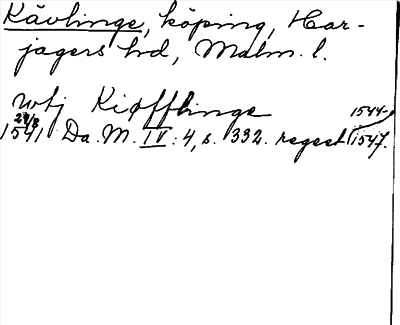 Kävlinge, köping, Har-
jagers hd, Malm. l.
utj Kiøfflinge
1544-
24/8
1541 Da. M. IV: 4, s. 332. regest 1547.